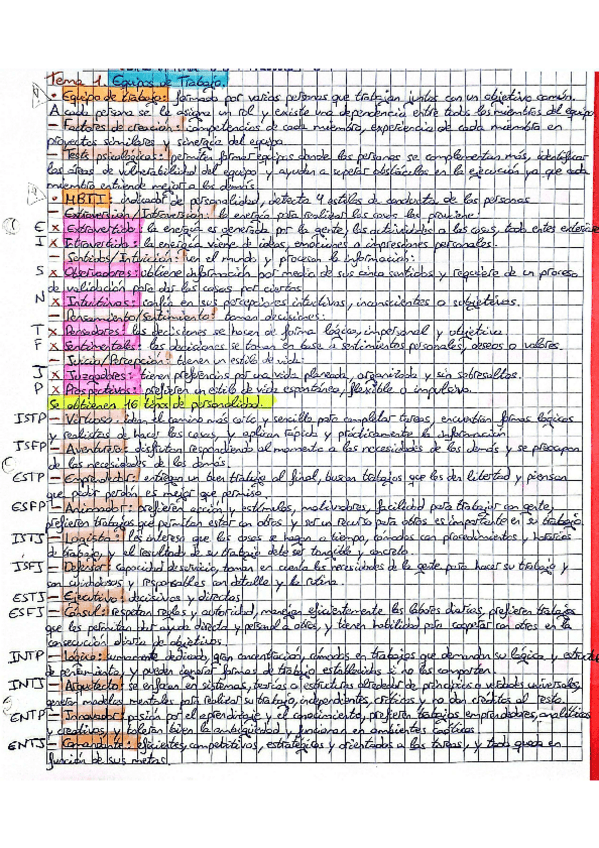 Tema 1. Equipos de Trabajo.
• Equipo de trabajo: formado por varias personas que trabajan juntas con un objetivo común.
A cada persona se le asigna un rol y existe una dependencia entre todos los miembros del equipo
– Factores de creación: competencias de cada miembro, experiencia de cada miembro en
proyectos similares y sinergia del equipo
– Tests psicológicos: permiten formar equipos donde las personas se complementan más, identificar
las áreas de vulnerabilidad del equipo y ayudan a superar obstáculos en la ejecución ya que cada
miembro entiende mejor a los demás
• MBTI: indicador de personalidad, detecta 4 estilos de conducta de las personas
– Extroversión/Introversión: la energía para realizar las cosas les proviene:
E x Extravertido: la energía es generada por la gente, las actividades o las cosas, todo entes exteriores
I x Introvertido: la energía viene de ideas, emociones o impresiones personales.
– Sentidos/Intuición: en el mundo y procesan la información:
S x Observadores: obtiene información por medio de sus cinco sentidos y requiere de un proceso
de validación para dar las cosas por ciertas
N x Intuitivos: confía en sus percepciones intuitivas, inconscientes o subjetivas.
– Pensamiento/sentimiento: toman decisiones:
T x Pensadores: las decisiones se hacen de forma lógica, impersonal y objetiva
F x Sentimentales: las decisiones se toman en base a sentimientos personales, deseos o valores.
– Juicio/Percepción: tienen un estilo de vida:
J x Juzgadores: tienen preferencias por una vida planeada, organizada y sin sobresaltos
P x Prospectivos: prefieren un estilo de vida espontánea, flexible o impulsiva.
Se obtienen 16 tipos de personalidad.
ISTP – Virtuoso: idean el camino más corto y sencillo para completar tareas, encuentran formas lógicas
y realistas de hacer las cosas y aplican rápida y prácticamente la información
ISFP – Aventurero: disfrutan respondiendo al momento a las necesidades de los demás y se preocupan
de las necesidades de los demás.
ESTP – Emprendedor: entregan un buen trabajo al final, buscan trabajos que les den libertad y piensan
que pedir perdón es mejor que permiso.
ESFP – Animador: prefieren acción y estímulos, motivadores, facilidad para trabajar con gente,
prefieren trabajos que permitan estar con otros y ser un recurso para otros es importante en su trabajo.
ISTJ – Logista: les interesa que las cosas se hagan a tiempo, cómodos con procedimientos y horarios
de trabajo, y el resultado de su trabajo debe ser tangible y concreto.
ISFJ – Defensor: capacidad de servicio, toman en cuenta las necesidades de la gente para hacer su trabajo y
son cuidadosos y responsables con detalle y la rutina.
ESTJ – Ejecutivo: decisivos y directos
ESFJ – Cónsul: respetan reglas y autoridad, manejan eficientemente las labores diarias, prefieren trabajos
que les permitan dar ayuda directa y personal a otros, y tienen habilidad para cooperar con otros en la
consecución diaria de objetivos.
INTP – Lógico: sumamente dedicado, gran concentración, cómodos en trabajos que demandan su lógica y
de pensamiento, y pueden cambiar formas de trabajo establecidas si no las comparten.
INTJ – Arquitecto: se enfocan en sistemas, teorías o estructuras alrededor de principios o verdades universales,
genera modelos mentales para realizar su trabajo, independientes, críticos y no dan crédito al resto
ENTP – Innovador: pasión por el aprendizaje y el conocimiento, prefieren trabajos emprendedores, analíticos
y creativos, y toleran bien la ambigüedad y funcionan en ambientes caóticos
ENTJ – Comandante: eficientes, competitivos, estratégicos y orientados a las tareas, y todo queda en
función de sus metas.